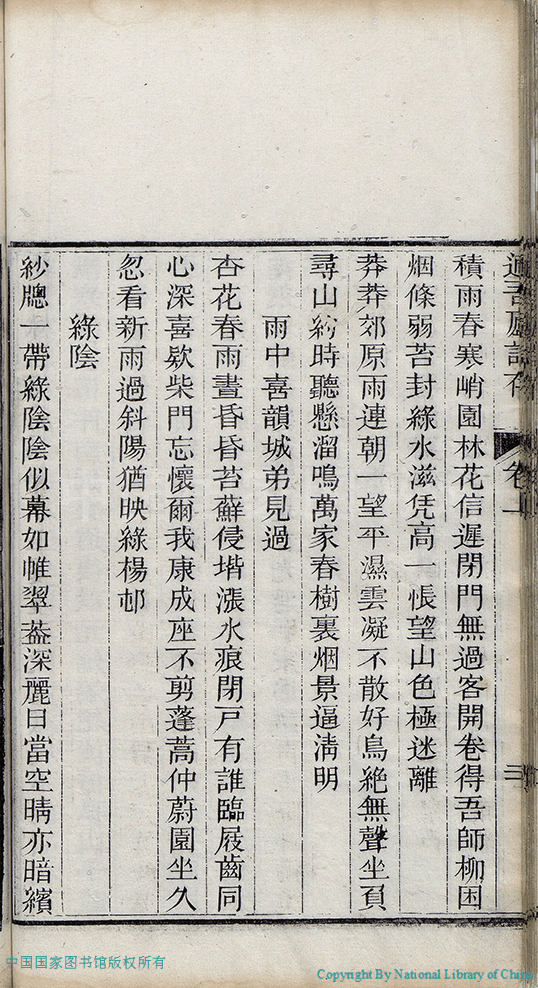 適吾廬詩存 卷一 三
積雨春寒峭園林花信遲閉門無過客開卷得吾師柳困
烟條弱苔封綠水滋凭高一悵望山色極迷離
莽莽郊原雨連朝一望平濕雲凝不散好鳥絶無聲坐負
尋山約時聽懸溜鳴萬家春樹裏烟景逼淸明
雨中喜韻城弟見過
杏花春雨晝昏昏苔蘚侵堦漲水痕閉戸有誰臨屐齒同
心深喜欵柴門忘懷爾我康成座不剪蓬蒿仲蔚園坐久
忽看新雨過斜陽猶映綠楊邨
綠陰
紗牕一帶綠陰陰似幕如帷翠葢深麗日當空晴亦暗繽
中国国家图书馆版权所有
Copyright By National Library of China